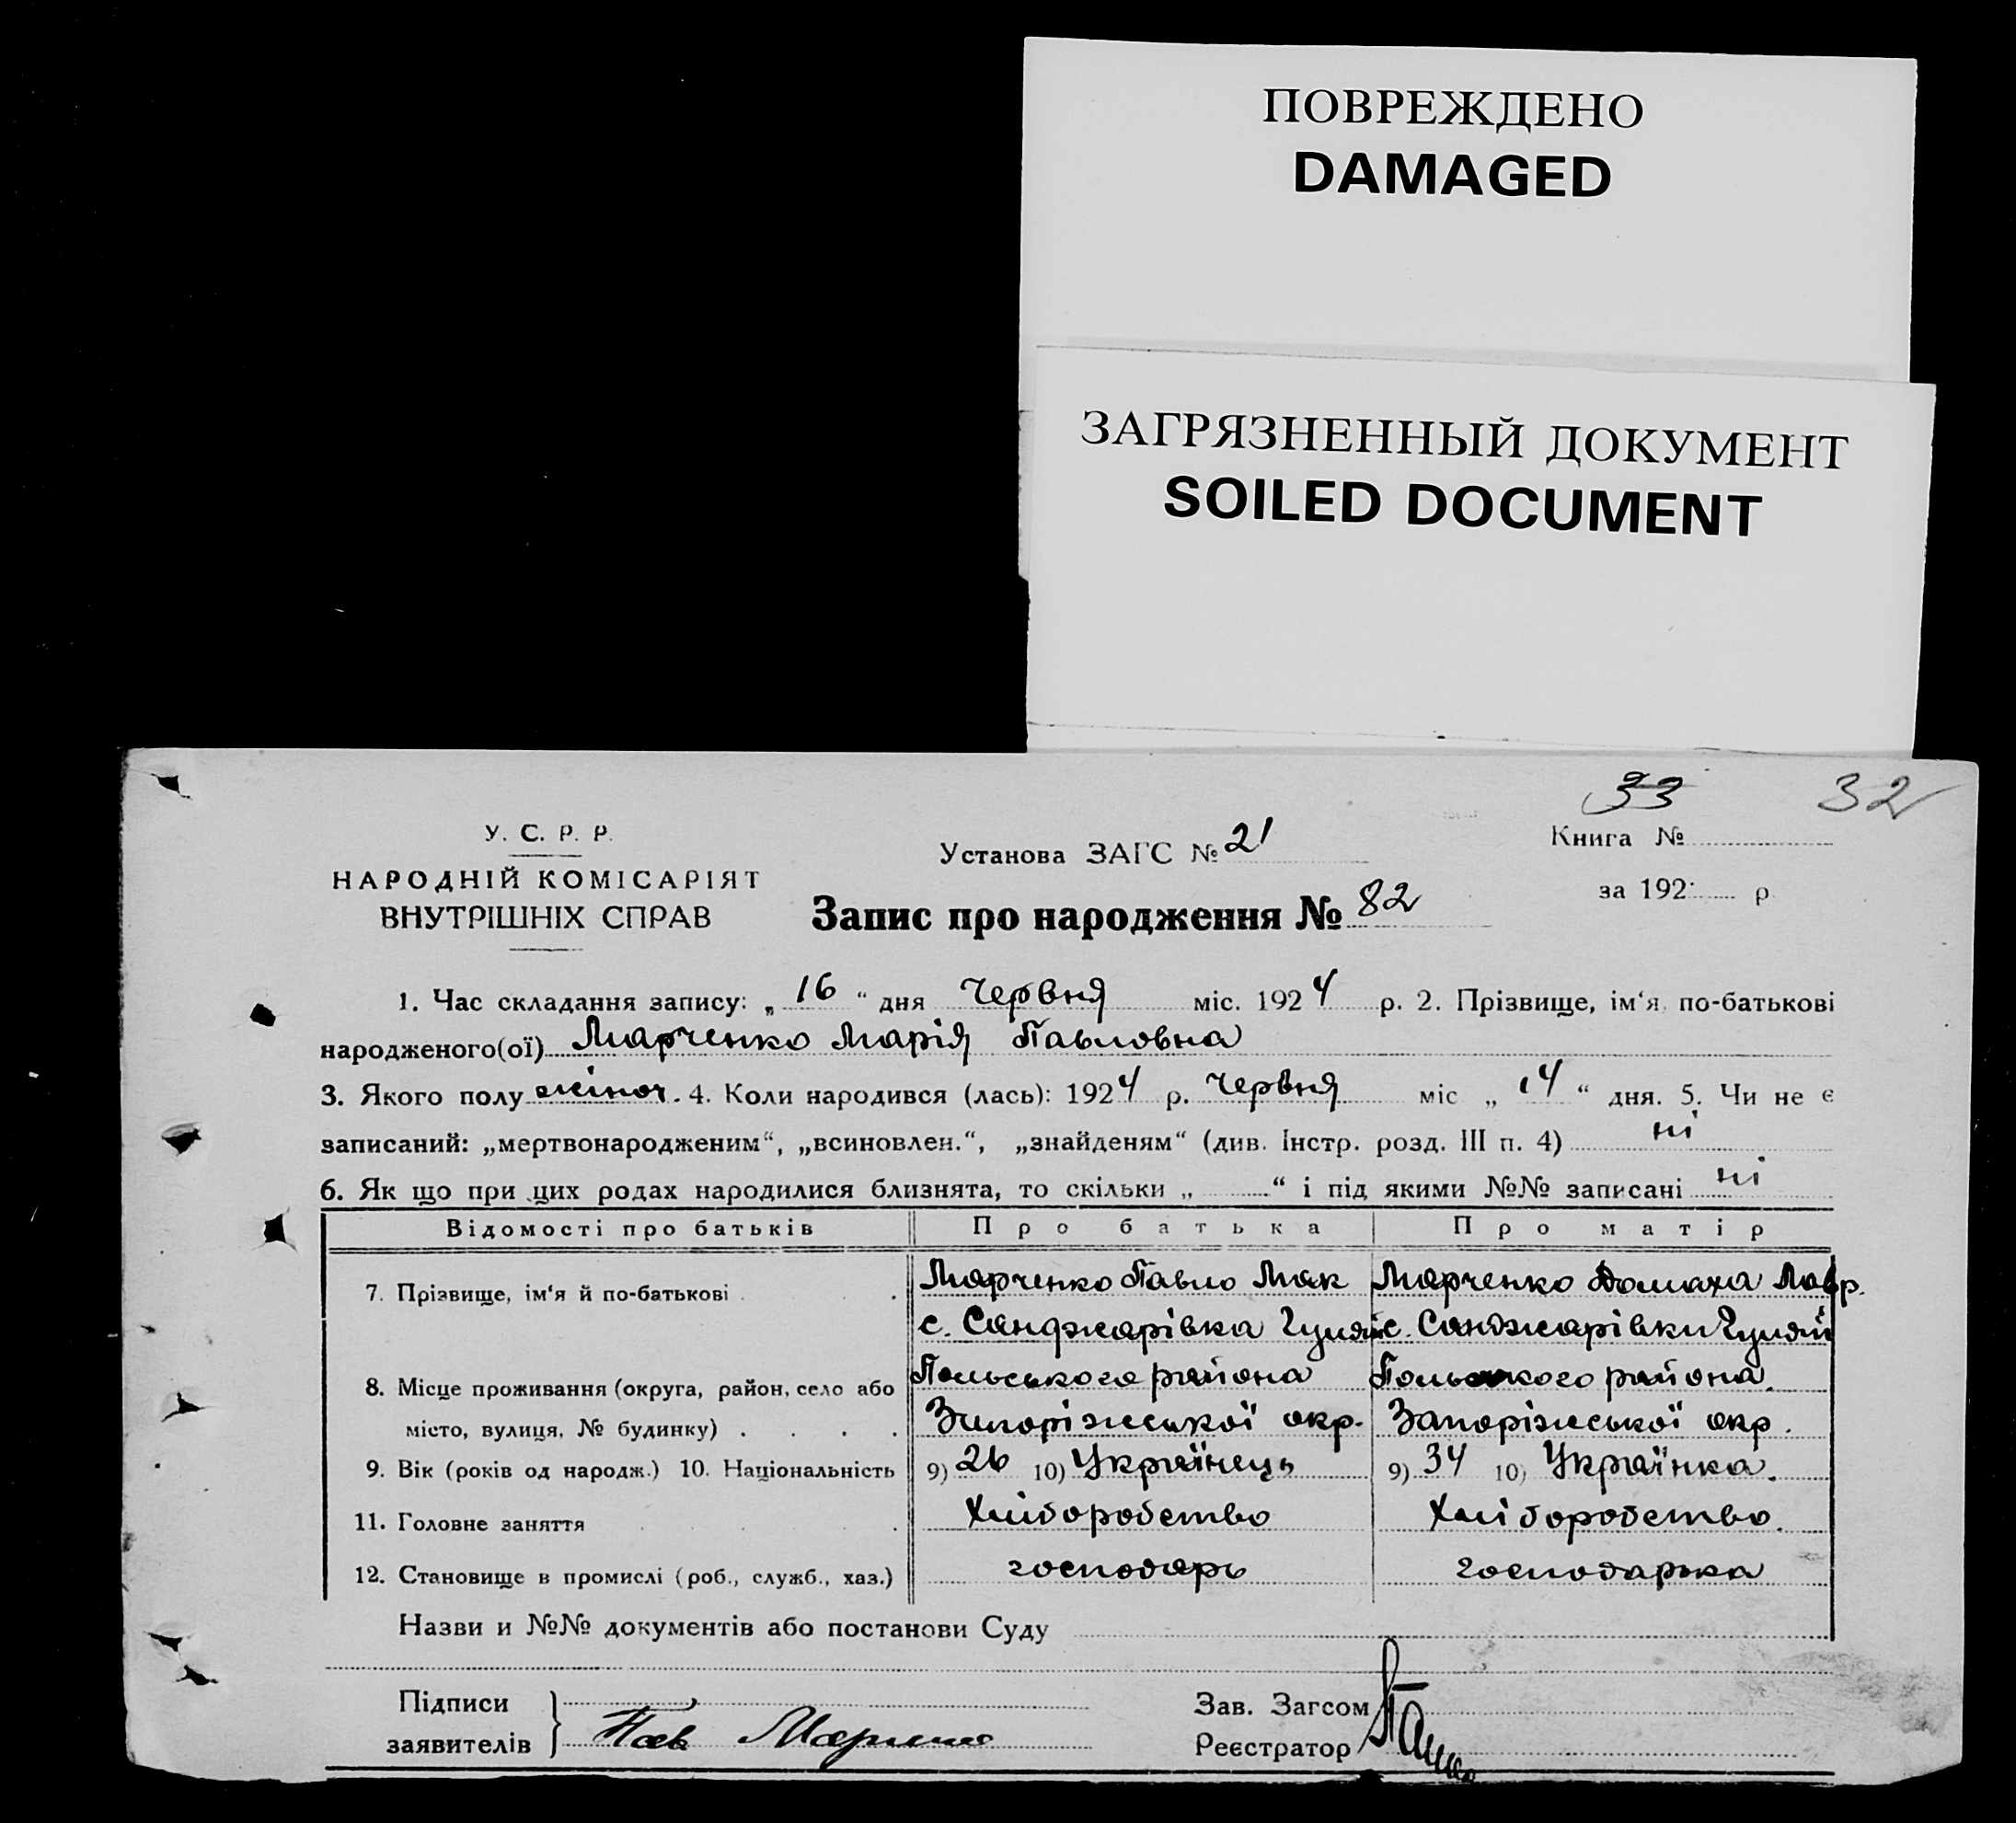 ПОВРЕЖДЕНО
DAMAGED
ЗАГРЯЗНЕННЫЙ ДОКУМЕНТ
SOILED DOCUMENT
33 32
У. С. Р. Р.
НАРОДНІЙ КОМІСАРІЯТ
ВНУТРІШНІХ СПРАВ
Установа ЗАГС № 21
Книга №
за 192 р.
Запис про народження № 82
1. Час складання запису: „ 16 “ дня Червня міс. 1924 р. 2. Прізвище, ім‘я, по-батькові
народженого(ої) Марченко Марія Павловна
3. Якого полу жіноч. 4. Коли народився (лась): 1924 р. Червня міс „ 14 “ дня. 5. Чи не є
записаний: „мертвонародженим“, „всиновлен.“, „знайденям“ (див. Інстр. розд. III п. 4) ні
6. Як що при цих родах народилися близнята, то скільки „ “ і під якими №№ записані ні
Відомості про батьків Про батька Про матір
7. Прізвище, ім‘я й по-батькові Марченко Павло Мак Марченко Домаха Лавр.
с. Санджарівка Гуляй с. Санджарівки Гуляй
8. Місце проживання (округа, район, село або Польського района Польского района.
місто, вулиця, № будинку) Запоріжської окр. Запоріжської окр.
9. Вік (років од народж.) 10. Національність 9) 26 10) Українець 9) 34 10) Українка.
11. Головне заняття Хліборобство Хліборобство.
12. Становище в промислі (роб., служб., хаз.) господарь господарька
Назви и №№ документів або постанови Суду
Підписи
заявителів } Пав Марченко
Зав. Загсом
Реєстратор